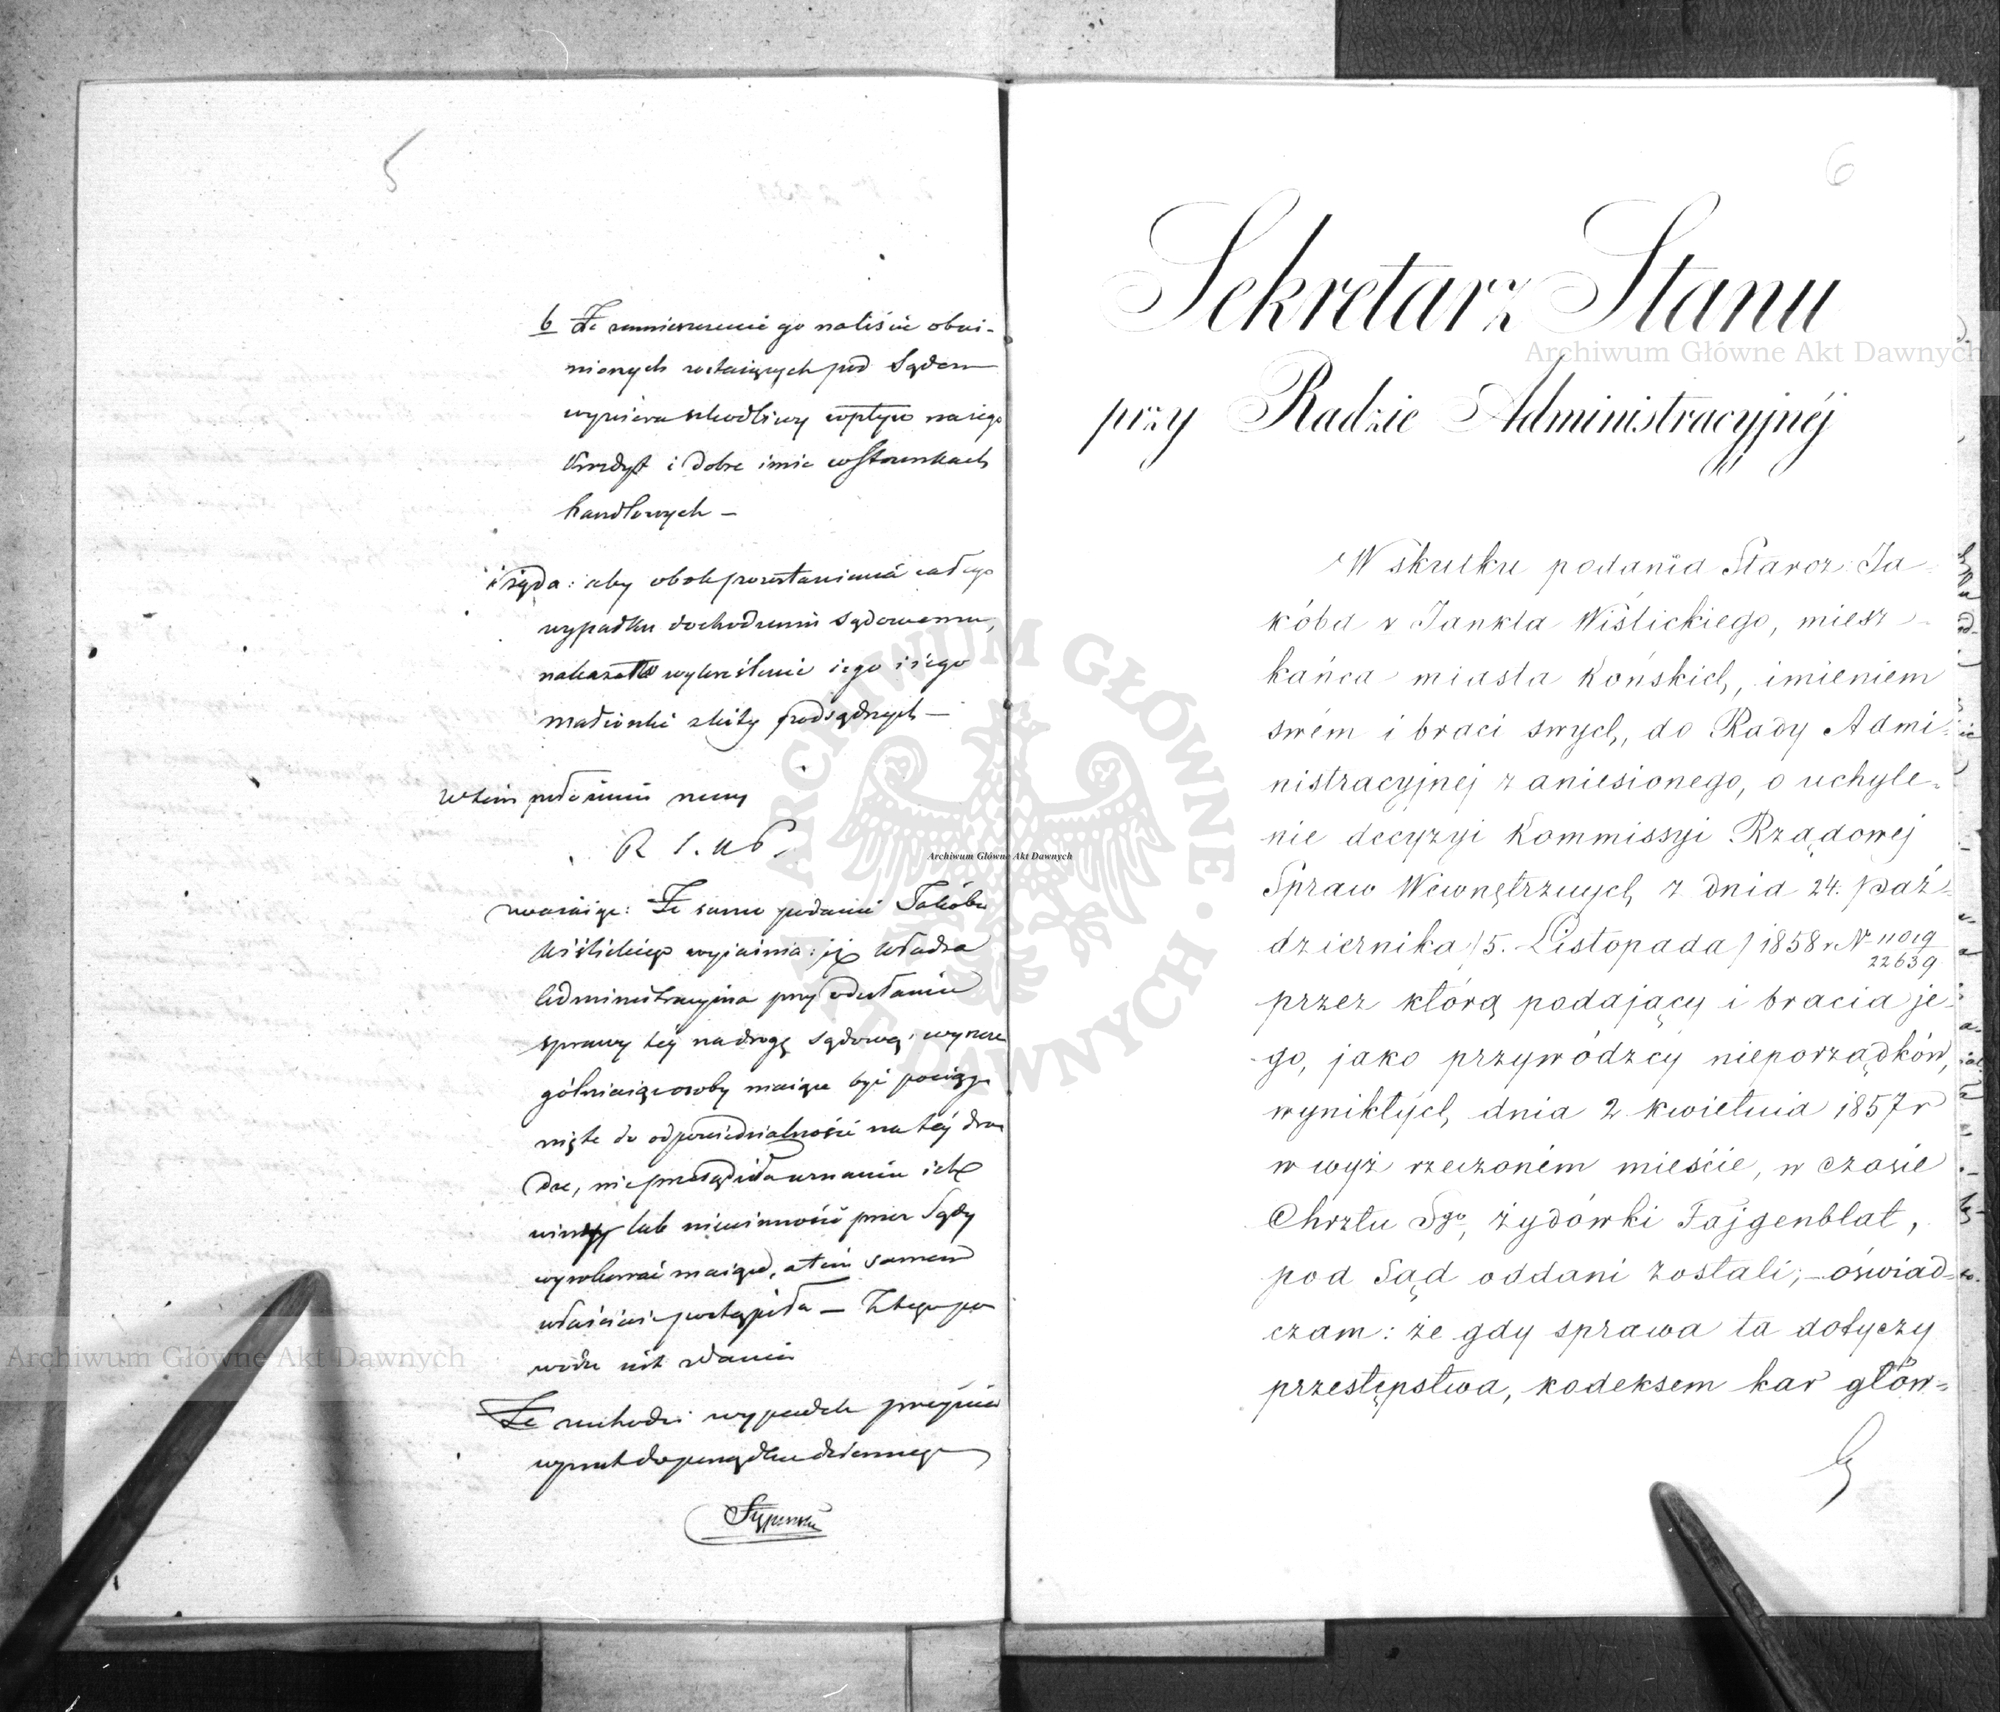 5
b Że zamieszczenie go na liście obwi-
nionych zostających pod Sądem
wywiera szkodliwy wpływ na iego
Kredyt i dobre imie w Stosunkach
handlowych —
i żąda: aby obok pozostawienia całego
wypadku dochodzeniu Sądowemu,
nakazała wykreślenie iego i iego
małżonki z listy podsądnych —
W tem położeniu rzeczy
uważając: Że samo podanie Jakóba
Wiślickiego wyjaśnia: iż Władza
Administracyjna przy odesłaniu
sprawy tej na drogę sądową, wyszcze
gólniając osoby mające być pociąg
nięte do odpowiedzialności na tej dro
dze, nie przesądziła uznania ich
winy lub niewinności przez Sądy
wyrokować mające, a tem samem
właściwie postąpiła — Z tego po
wodu jest zdania
Że zachodzi wypadek przejścia
wprost do porządku dziennego
6
Sekretarz Stanu
przy Radzie Administracyjnéj
W skutku podania Staroz: Ja-
kóba v Jankla Wiślickiego, miesz-
kańca miasta Końskich, imieniem
swém i braci swych, do Rady Admi-
nistracyjnej zaniesionego, o uchyle-
nie decyzyi Kommissyi Rządowej
Spraw Wewnętrznych z dnia 24. Paź-
dziernika /5. Listopada/ 1858 r N 11019
22639
przez którą podający i bracia je-
go, jako przywódzcy nieporządków,
wynikłych, dnia 2 kwietnia 1857 r
w wyż rzeczoném mieście, w czasie
Chrztu Sgo, żydówki Fajgenblat,
pod Sąd oddani zostali; — oświad-
czam: że gdy sprawa ta dotyczy
przestępstwa, kodeksem kar głów-
Archiwum Główne Akt Dawnych
Archiwum Główne Akt Dawnych
Archiwum Główne Akt Dawnych
ARCHIWUM GŁÓWNE AKT DAWNYCH